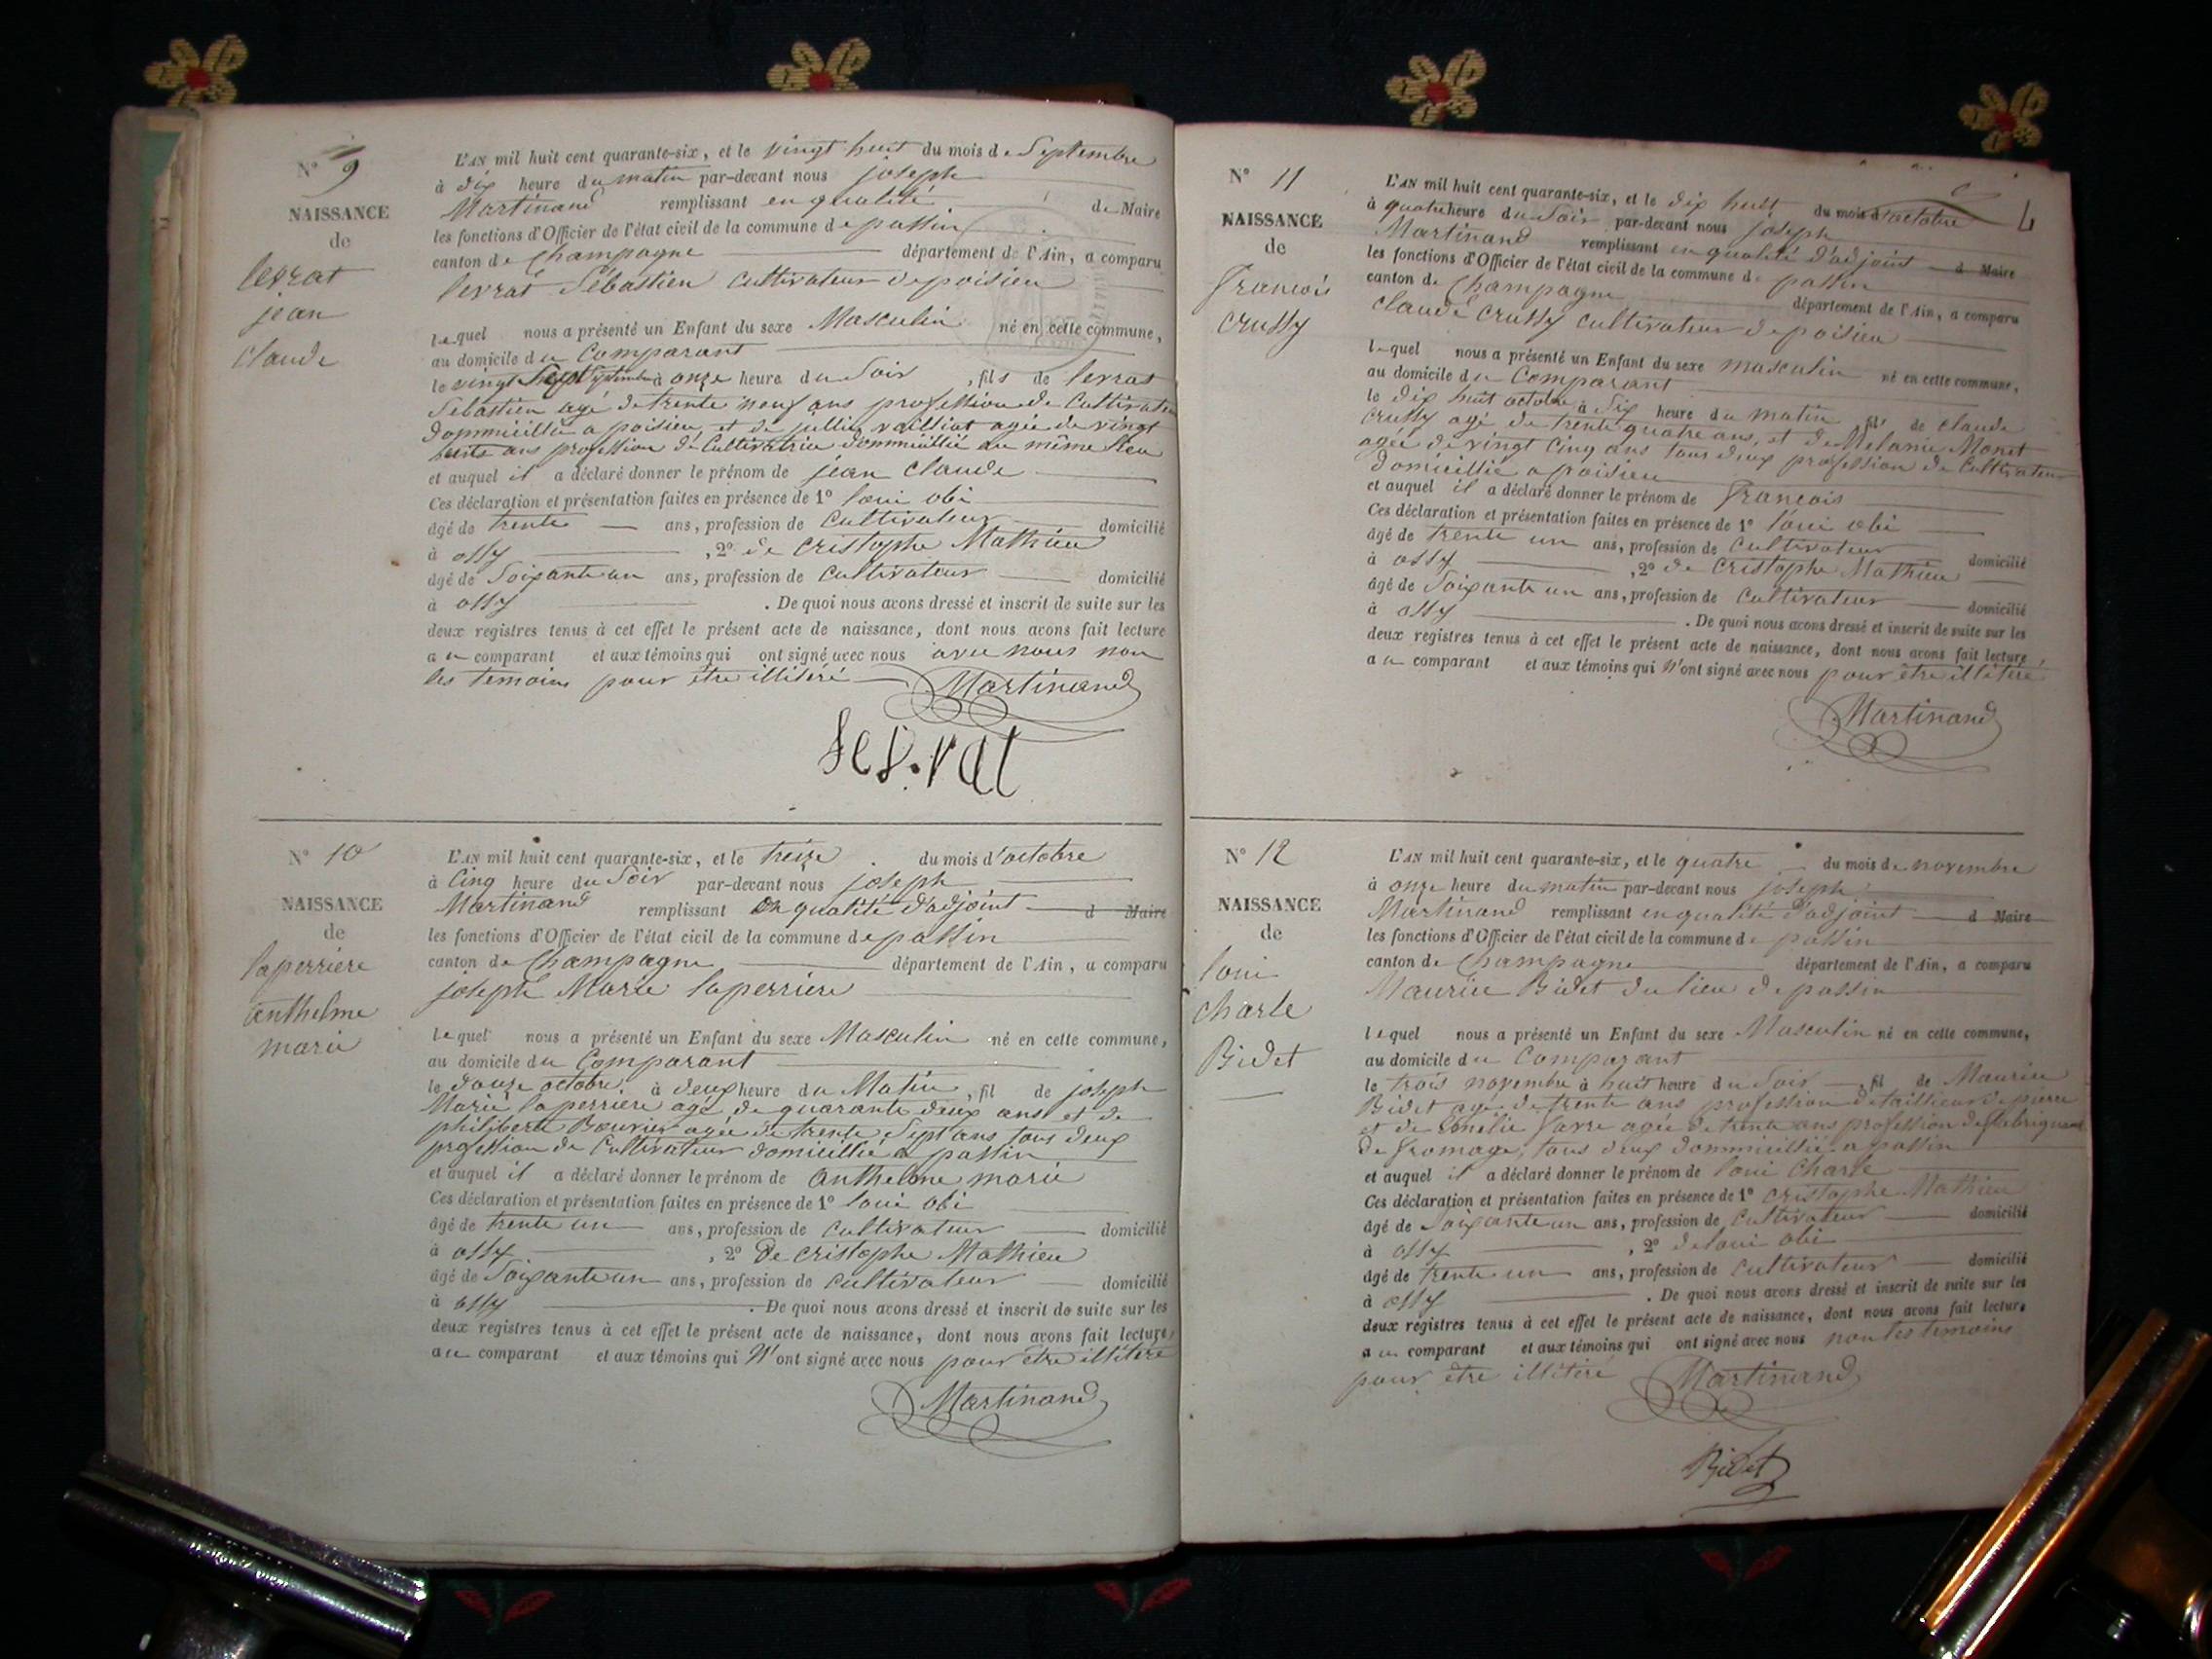 N° 9
NAISSANCE
de
levrat
jean
claude
L'AN mil huit cent quarante-six, et le vingt huit du mois de Septembre
à dix heure du matin par-devant nous joseph
Martinand remplissant en qualité de Maire
les fonctions d'Officier de l'état civil de la commune de passin
canton de Champagne département de l'Ain, a comparu
levrat Sébastien cultivateur de poisieu
lequel nous a présenté un Enfant du sexe Masculin né en cette commune,
au domicile du Comparant
le vingt Sept Septembre à onze heure du Soir, fils de levrat
Sébastien agé de trente neuf ans profession de Cultivateur
dommicillié a poisieu et de agée de vingt
ans profession de Cultivatrice dommicillié au même lieu
et auquel il a déclaré donner le prénom de jean claude
Ces déclaration et présentation faites en présence de 1° loui obi
âgé de trente ans, profession de Cultivateur domicilié
à ossy, 2° de cristophe Mathieu
âgé de Soixante un ans, profession de Cultivateur domicilié
à ossy. De quoi nous avons dressé et inscrit de suite sur les
deux registres tenus à cet effet le présent acte de naissance, dont nous avons fait lecture
au comparant et aux témoins qui ont signé avec nous avec nous non
les temoins pour être illitéré Martinand
N° 10
NAISSANCE
de
laperriere
anthelme
marie
L'AN mil huit cent quarante-six, et le treize du mois d'octobre
à Cinq heure du Soir par-devant nous joseph
Martinand remplissant en qualité d'adjoint d Maire
les fonctions d'Officier de l'état civil de la commune de passin
canton de Champagne département de l'Ain, a comparu
joseph Marie laperriere
lequel nous a présenté un Enfant du sexe Masculin né en cette commune,
au domicile du Comparant
le douze octobre à deux heure du Matin, fil de joseph
Marie laperriere agé de quarante deux ans et de
philiberte Bouvier agée de trente Sept ans tous deux
profession de Cultivateur domicillié a passin
et auquel il a déclaré donner le prénom de anthelme marie
Ces déclaration et présentation faites en présence de 1° loui obi
âgé de trente un ans, profession de Cultivateur domicilié
à ossy, 2° De cristophe Mathieu
âgé de Soixante un ans, profession de cultivateur domicilié
à ossy. De quoi nous avons dressé et inscrit de suite sur les
deux registres tenus à cet effet le présent acte de naissance, dont nous avons fait lecture,
au comparant et aux témoins qui N'ont signé avec nous pour être illitéré
Martinand
N° 11
NAISSANCE
de
Francois
crussy
L'AN mil huit cent quarante-six, et le dix huit du mois d'octobre
à quatre heure du Soir par-devant nous joseph
Martinand remplissant en qualité d'adjoint d Maire
les fonctions d'Officier de l'état civil de la commune de passin
canton de Champagne département de l'Ain, a comparu
claude crussy cultivateur de poisieu
lequel nous a présenté un Enfant du sexe masculin né en cette commune,
au domicile du Comparant
le dix huit octobre à Six heure du matin fil de claude
crussy agé de trente quatre ans, et de Melanie Monet
agée de vingt cinq ans tous deux profession de Cultivateur
domicillié a poisieu
et auquel il a déclaré donner le prénom de francois
Ces déclaration et présentation faites en présence de 1° loui obi
âgé de trente un ans, profession de cultivateur domicilié
à ossy, 2° de cristophe Mathieu
âgé de Soixante un ans, profession de Cultivateur domicilié
à ossy. De quoi nous avons dressé et inscrit de suite sur les
deux registres tenus à cet effet le présent acte de naissance, dont nous avons fait lecture,
au comparant et aux témoins qui N'ont signé avec nous pour être illitéré
Martinand
N° 12
NAISSANCE
de
loui
charle
Bidet
L'AN mil huit cent quarante-six, et le quatre du mois de novembre
à onze heure du matin par-devant nous joseph
Martinand remplissant en qualité d'adjoint d Maire
les fonctions d'Officier de l'état civil de la commune de passin
canton de Champagne département de l'Ain, a comparu
Maurice Bidet du lieu de passin
lequel nous a présenté un Enfant du sexe Masculin né en cette commune,
au domicile du Comparant
le trois novembre à huit heure du Soir, fil de Maurice
Bidet agé de trente ans profession de tailleur de pierre
et de agée de trente ans profession de
de fromage, tous deux dommicillié a passin
et auquel il a déclaré donner le prénom de loui charle
Ces déclaration et présentation faites en présence de 1° cristophe Mathieu
âgé de Soixante un ans, profession de Cultivateur domicilié
à ossy, 2° de loui obi
âgé de trente un ans, profession de cultivateur domicilié
à ossy. De quoi nous avons dressé et inscrit de suite sur les
deux registres tenus à cet effet le présent acte de naissance, dont nous avons fait lecture
au comparant et aux témoins qui ont signé avec nous non les temoins
pour être illitéré Martinand
Bidet